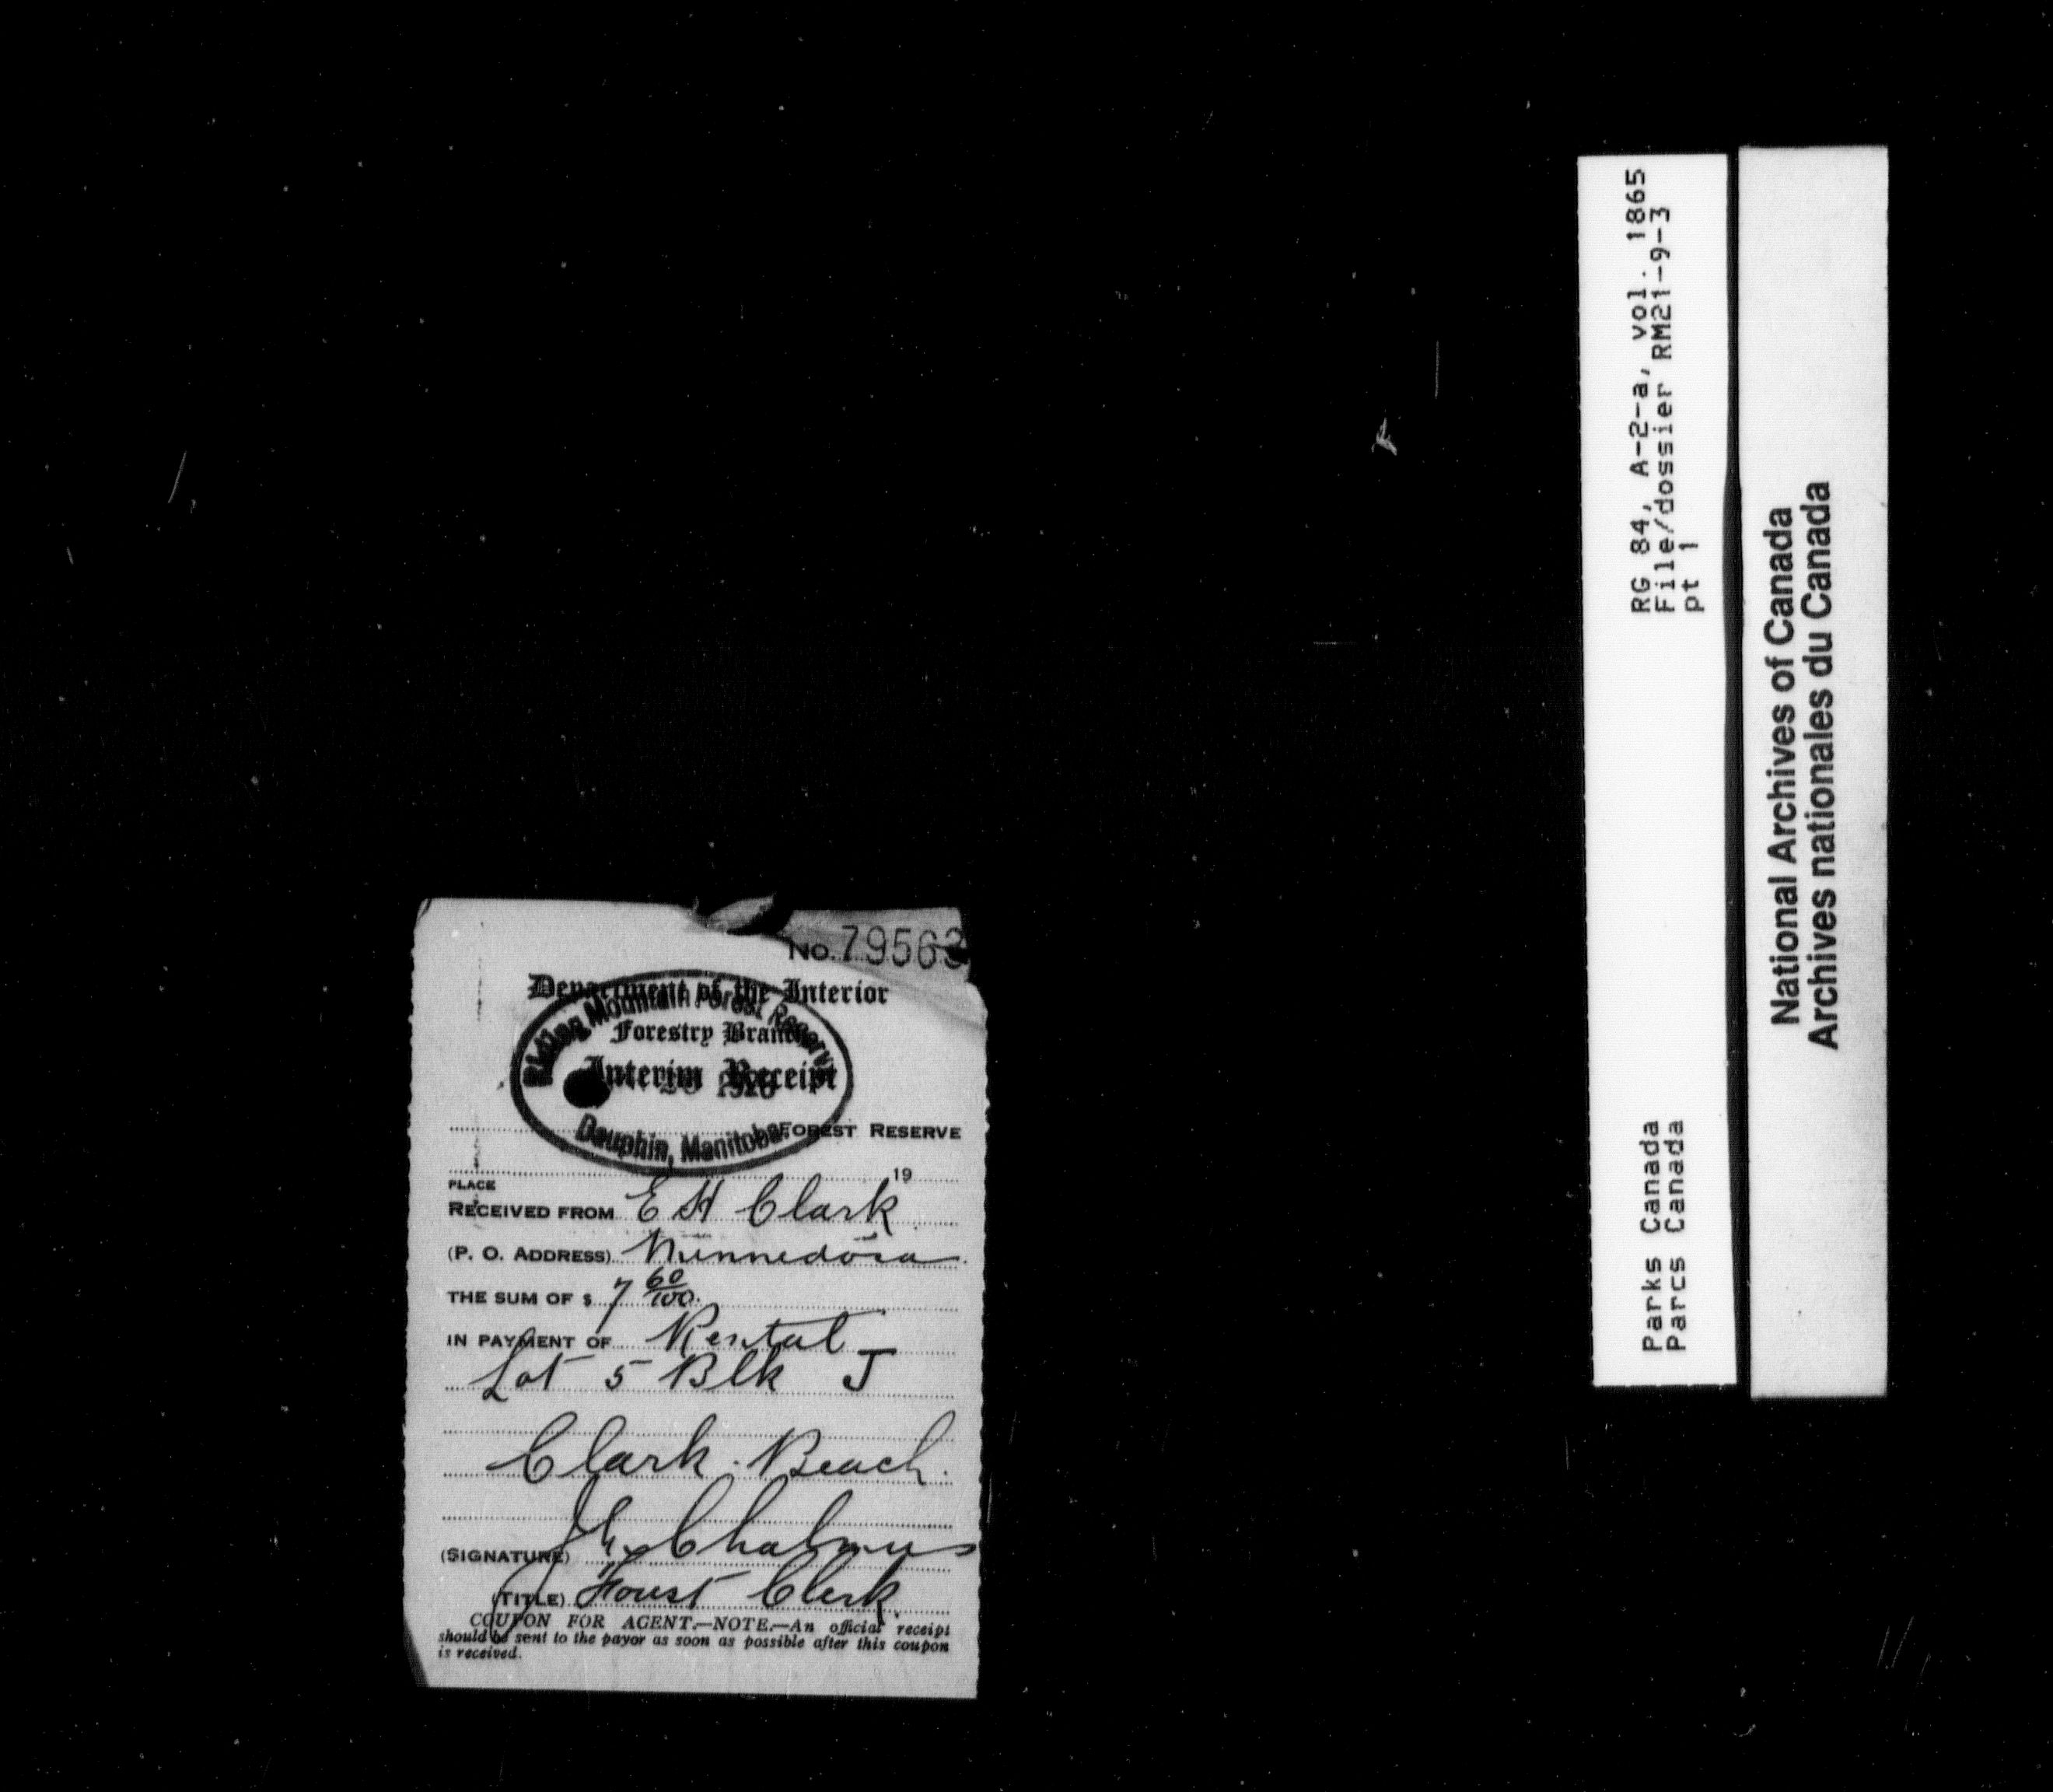 No. 79563
Department of the Interior
Riding Mountain Forest Reserve
Forestry Branch
Interim Receipt
Dauphin, Manitoba.
FOREST RESERVE
19
PLACE
RECEIVED FROM E H Clark
(P. O. ADDRESS) Minnedosa
THE SUM OF $ 7 60/100
IN PAYMENT OF Rental
Lot 5 Blk J
Clark Beach.
(SIGNATURE) Chalmers
(TITLE) Forest Clerk.
COUPON FOR AGENT.—NOTE.—An official receipt
should be sent to the payor as soon as possible after this coupon
is received.
RG 84, A-2-a, vol. 1865
File/dossier RM21-9-3
pt 1
Parks Canada
Parcs Canada
National Archives of Canada
Archives nationales du Canada